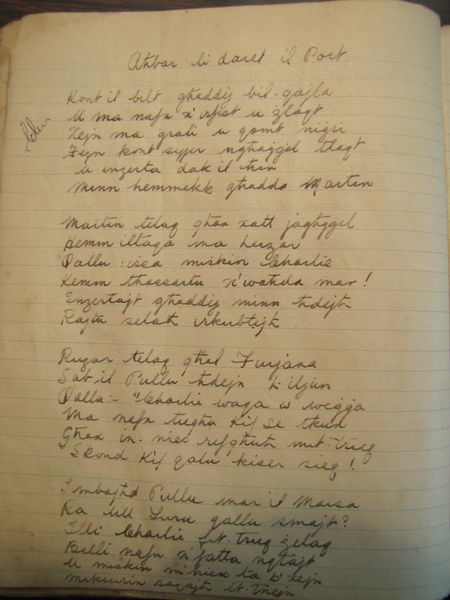 Ahbar li daret il Port
Helen
Kont il belt ghaddej bil-gajla
U ma nafx x'irfist u zlaqt
Hejn ma grali u qomt nigri
Fejn kont sejjer nghaggel tlaqt
U inzerta dak il hin
Minn hemmekk ghadda Martin
Martin telaq ghax xatt jaghggel
Hemm iltaqa ma Ruzar
Qallu: issa miskin Charlie
Kemm thassartu x'wahda mar!
Inzertajt ghaddej minn hdejh
Rajtu selah irkubtejh
Ruzar telaq ghal Furjana
Sab il Pullu hdejn l-iljun
Qallu:- "Charlie waqa w weġġa
Ma nafx tieghu kif se tkun
Ghax in-nies refghuh mit-triq
Skond kif qalu kiser sieq!
Imbaghd Pullu mar il Marsa
Ra lill Luru qallu smajt?
Illi Charlie fit-triq zelaq
Billi nafu x'fatta nghajt
U miskin m'hiex ta b'xejn
miksurin saqajh it-tnejn